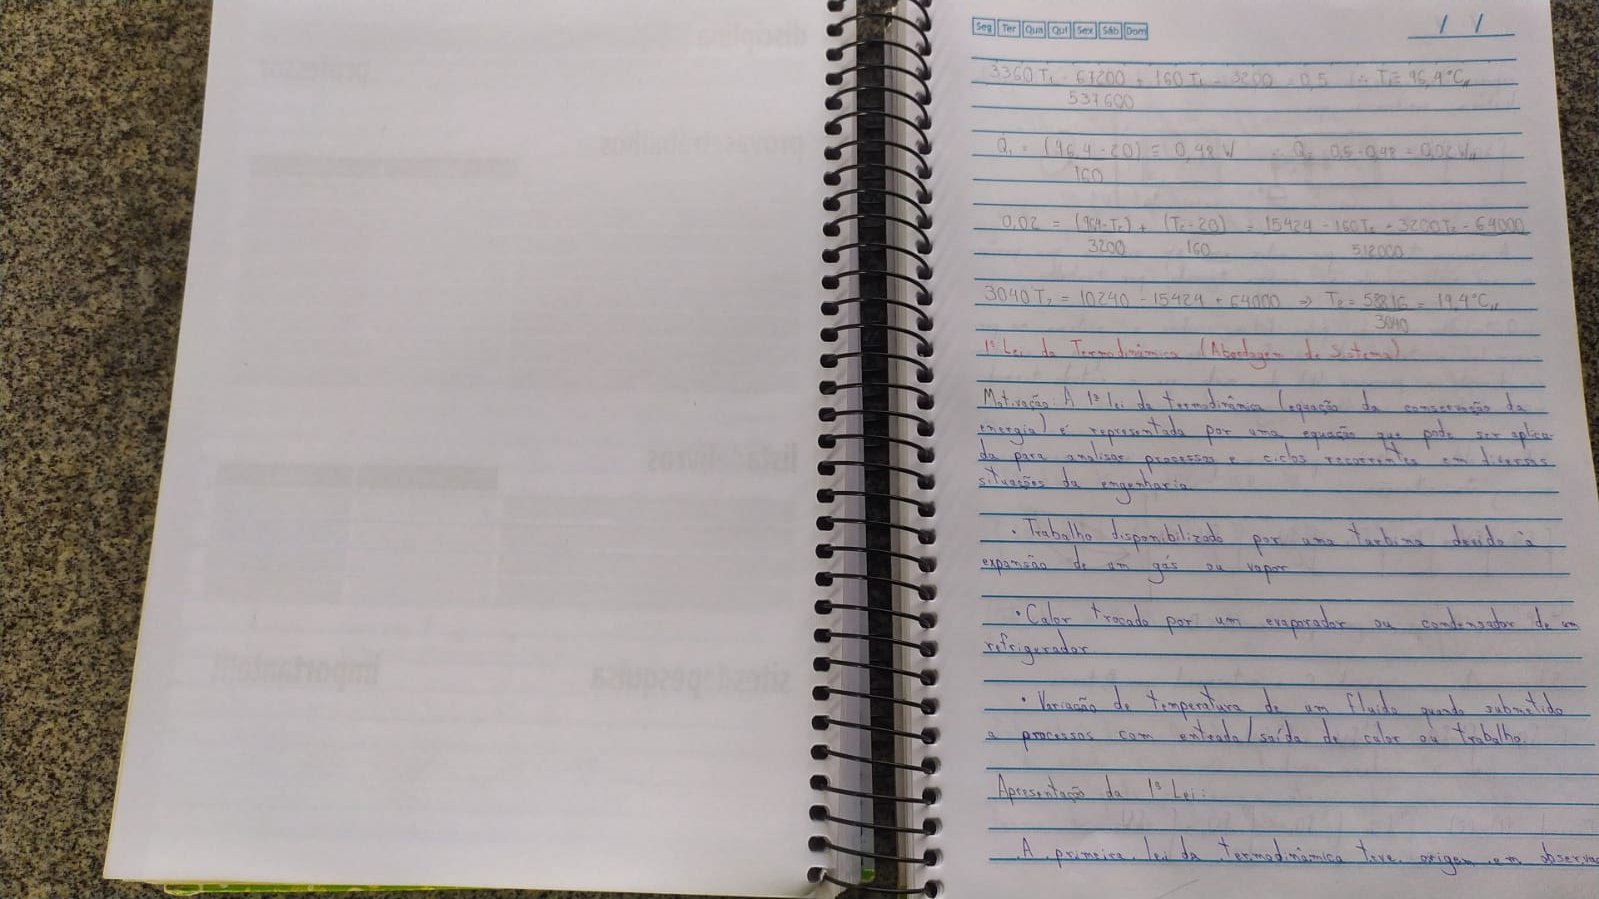 Seg Ter Qua Qui Sex Sáb Dom
/ /
3360 T₁ - 67200 + 160 T₁ - 3200 = 0,5 ∴ T₁ = 96,4°C
537600
Q₁ = (96,4 - 20) = 0,48 W ∴ Q₂ = 0,5 - 0,48 = 0,02 W
160
0,02 = (96,4 - T₂) + (T₂ - 20) = 15424 - 160T₂ + 3200T₂ - 64000
3200 160 512000
3040 T₂ = 10240 - 15424 + 64000 ⇒ T₂ = 58816 = 19,4°C
3040
1ª Lei da Termodinâmica (Abordagem de Sistema)
Motivação: A 1ª lei da termodinâmica (equação da conservação da
energia) é representada por uma equação que pode ser aplica-
da para analisar processos e ciclos recorrentes em diversas
situações da engenharia.
· Trabalho disponibilizado por uma turbina devido à
expansão de um gás ou vapor
· Calor trocado por um evaporador ou condensador de um
refrigerador.
· Variação de temperatura de um fluido quando submetido
a processos com entrada/saída de calor ou trabalho.
Apresentação da 1ª Lei:
A primeira lei da termodinâmica teve origem em observa
disciplina
professor
provas+trabalhos
lista de livros
sites de pesquisa
importante!!!